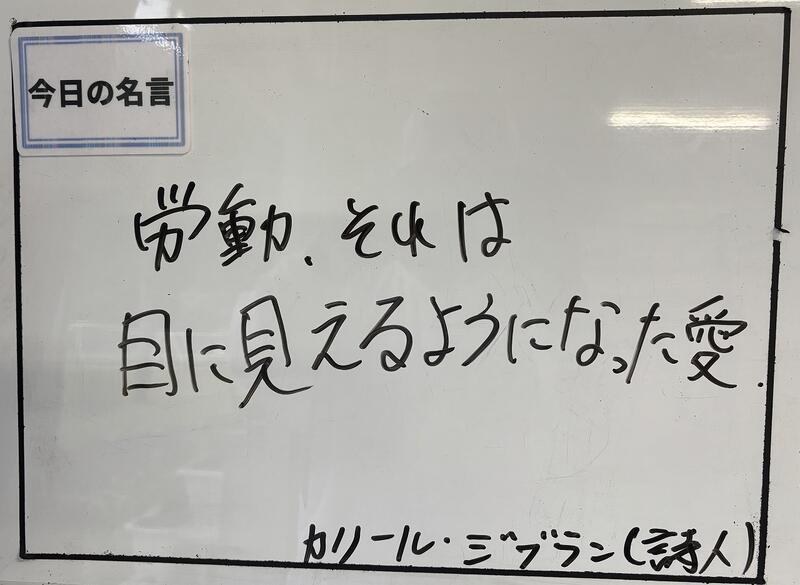 今日の名言
労働、それは
目に見えるようになった愛.
カリール・ジブラン(詩人)